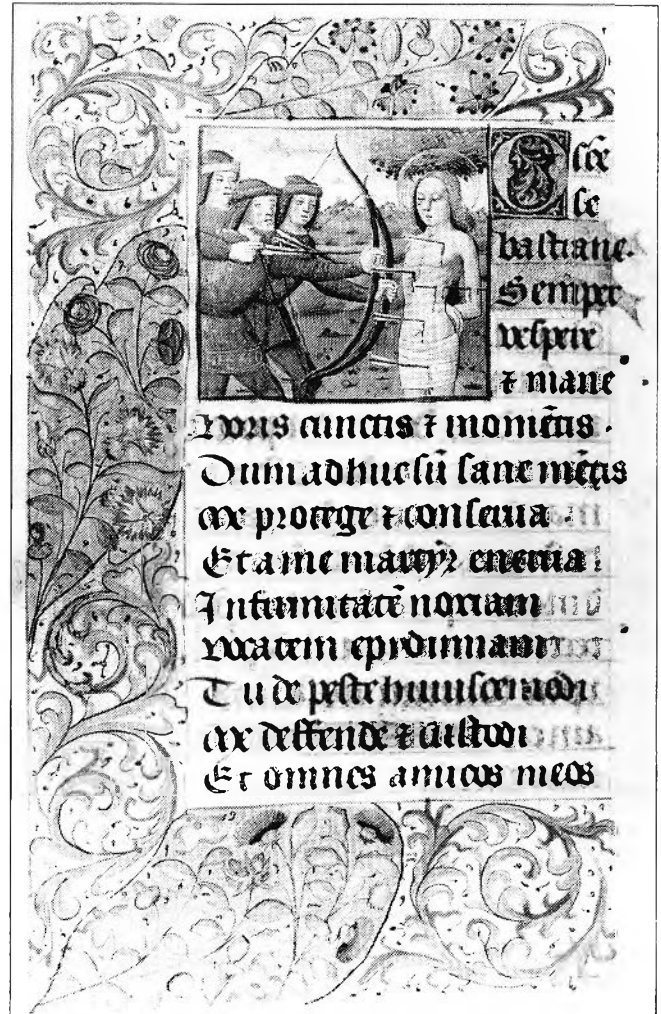 O scē
se
bastiane.
Semper
vespere
⁊ mane
horis cunctis ⁊ momētis.
Dum adhuc sū sane mētis
me protege ⁊ conserua.
Et a me martyr eneruia
Infirmitatē noxiam
vocatem epidimiam
Tu de peste huiuscemodi
me deffende ⁊ custodi
Et omnes amicos meos